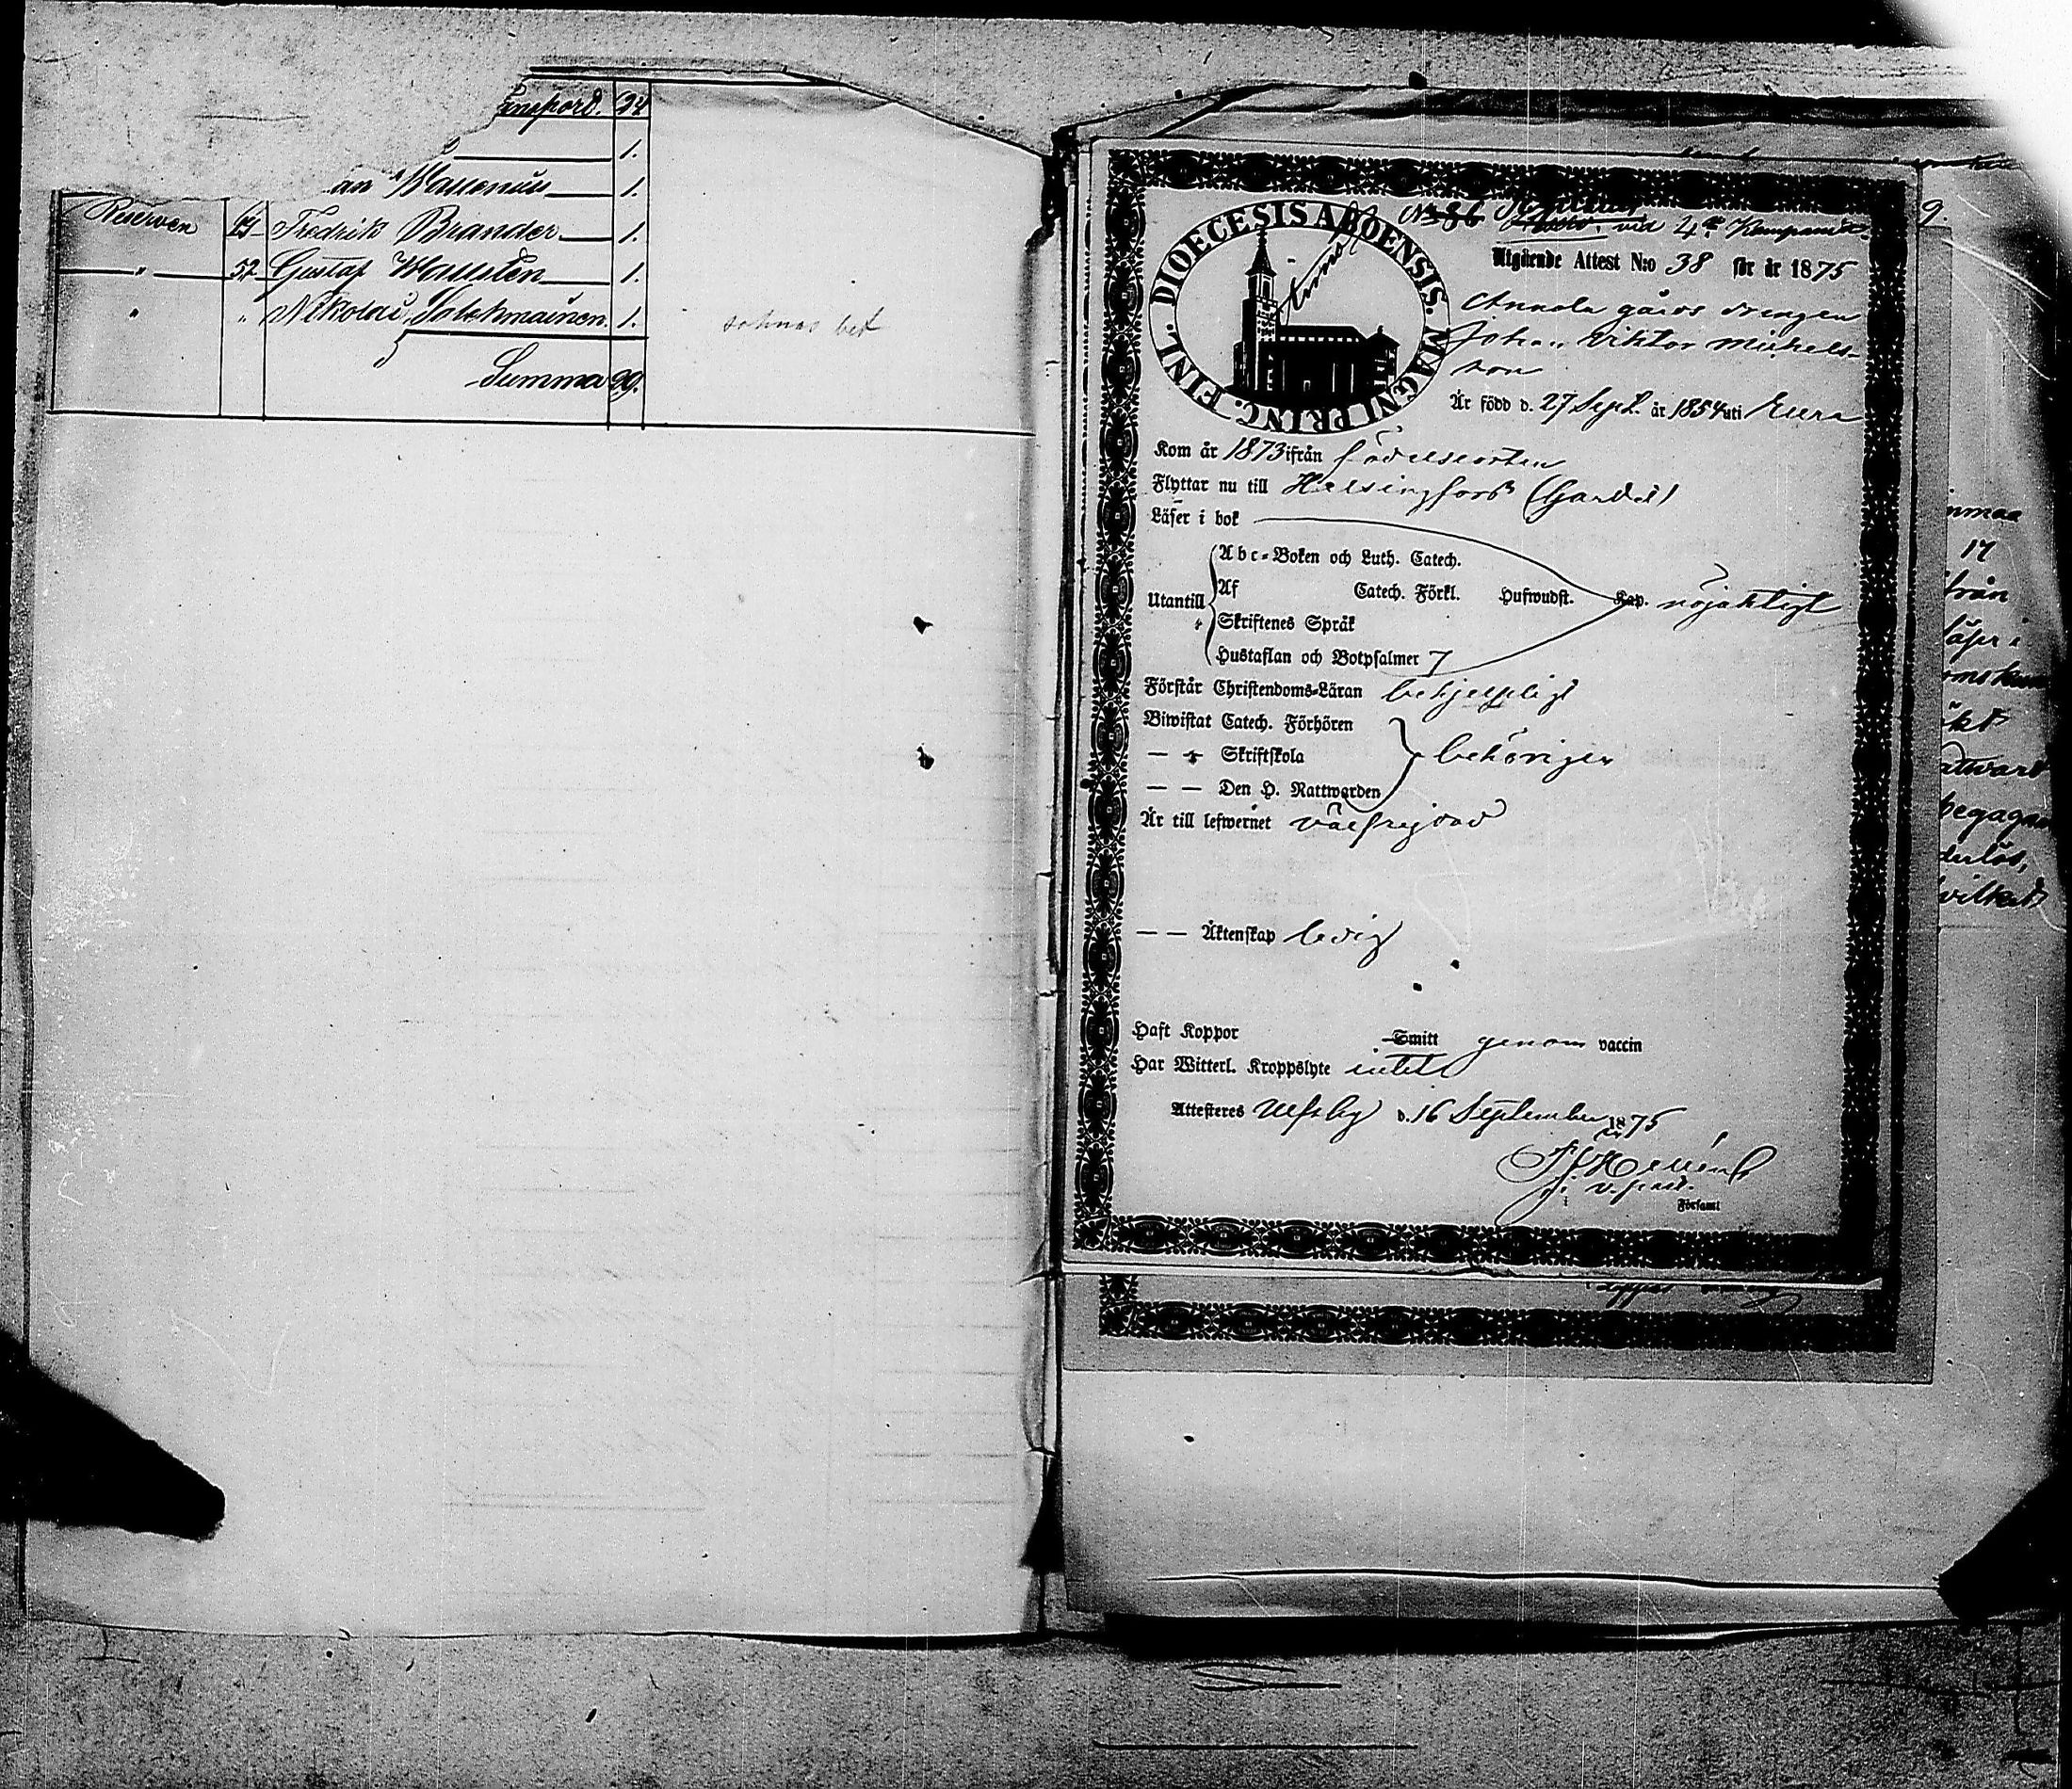 Transport. 24
1.
an Wallenius 1.
Reserven Fredrik Brander 1.
" 52 Gustaf 1.
" " Nikolai 1.
bet
Summa 29.
DIOECESIS ABOENSIS. MAGNI PRINC. FINL.
No 86
vid 4de Kompaniet
Utgående Attest N:o 38 för år 1875
Annola gårds drengen
Johan Viktor Michels-
son
Är född d. 27 Sept. år 1854 uti Eura
Kom år 1873 ifrån födelseorten
Flyttar nu till Helsingfors (Gardet)
Läser i bok
Abc-Boken och Luth. Catech.
Utantill Af Catech. Förkl. Hufwudst. Kap. nöjaktigt
Skriftenes Språk
Hustaflan och Botpsalmer 7
Förstår Christendoms-Läran behjelpligt
Biwistat Catech. Förhören
— " Skriftskola behörigen
— — Den H. Nattwarden
Är till lefwernet välfrejdad
— — Äktenskap ledig
Haft Koppor Smitt genom vaccin
Har Witterl. Kroppslyte intet
Attesteres Ulfsby d. 16 September 1875
v. past.
Församl
9.
mmaa
17
från
läser i
önskun
ökt
attvard
begagn
derlös,
vilket